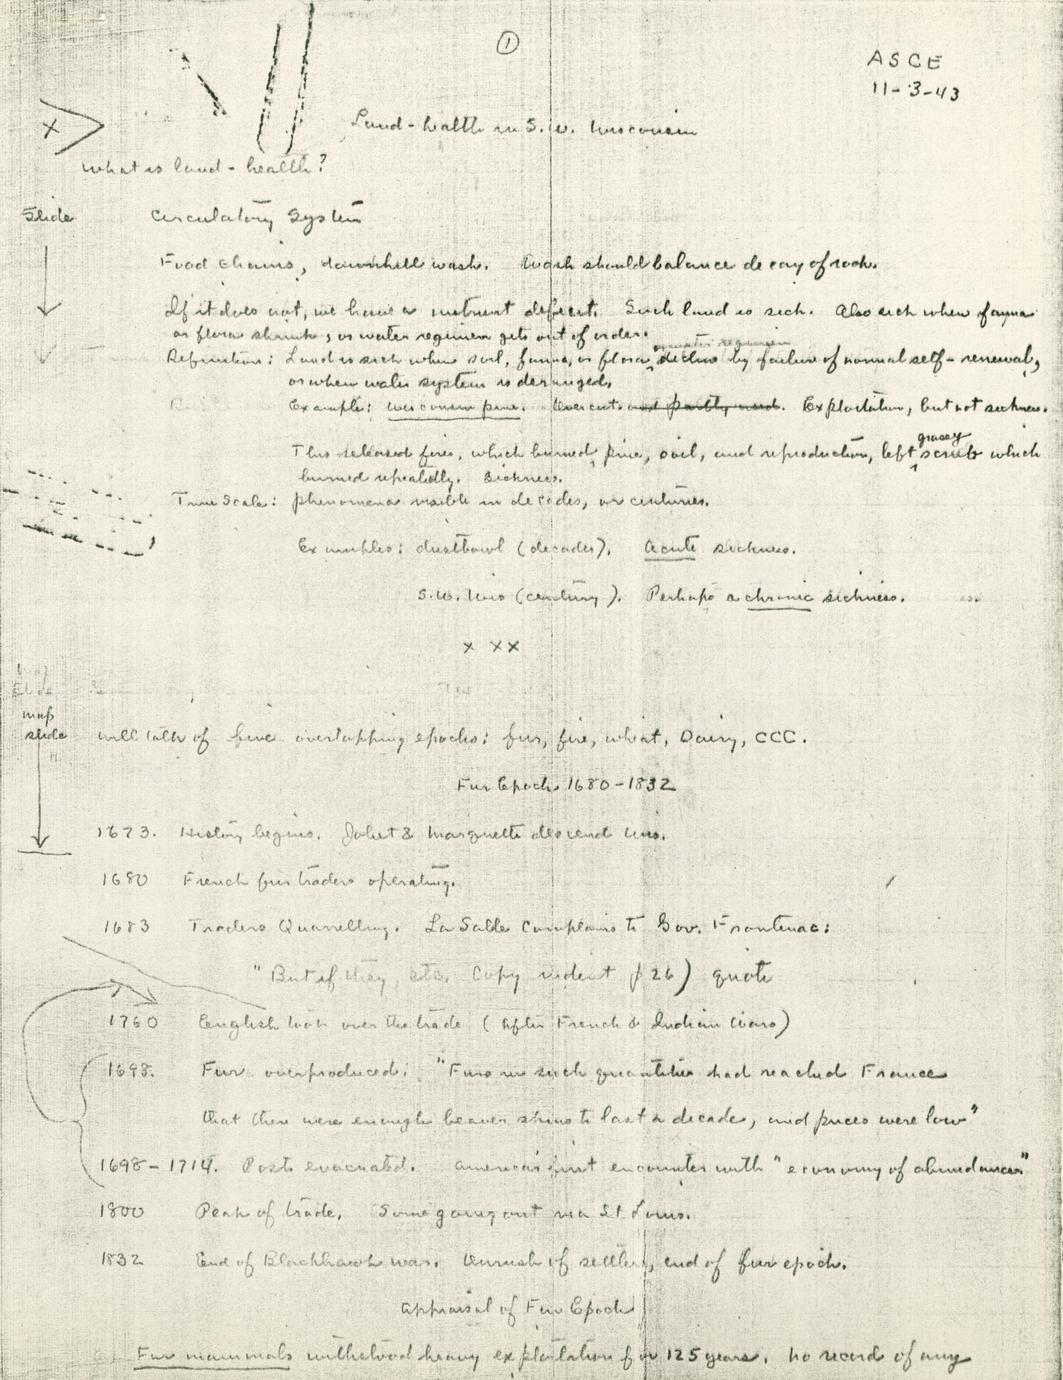 1
ASCE
11-3-43
Land-health in S.W. Wisconsin
X
What is land-health?
Slide
Circulatory System
Food chains, downhill wash. Wash should balance decay of rock.
If it does not, we have a nutrient deficit. Such land is sick. Also sick when fauna
or flora shrink, or water regimen gets out of order.
or water regimen
Definition: Land is sick when soil, fauna, or flora decline by failure of normal self-renewal,
or when water system is deranged.
Example: Wisconsin pine. Overcut and partly used. Exploitation, but not sickness.
grassy
This released fires, which burned pine, soil, and reproduction, left scrub which
burned repeatedly. Sickness.
Time Scale: phenomena visible in decades, or centuries.
Examples: dustbowl (decades). Acute sickness.
S.W. Wis (century). Perhaps a chronic sickness.
x xx
map
slide
Will talk of five overlapping epochs: fur, fire, wheat, Dairy, CCC.
Fur Epoch 1680-1832
1673. History begins. Joliet & Marquette descend Wis.
1680 French fur traders operating.
1683 Traders Quarrelling. La Salle complains to Gov. Frontenac:
"But if they, etc. Copy p 26) quote
1760 English took over the trade (After French & Indian Wars)
1698. Fur overproduced: "Furs in such quantities had reached France
that there were enough beaver skins to last a decade, and prices were low"
1698-1714. Posts evacuated. America's first encounter with "economy of abundance"
1800 Peak of trade. Some going out via St. Louis.
1832 End of Blackhawk war. Onrush of settlers, end of fur epoch.
Appraisal of Fur Epoch
Fur mammals withstood heavy exploitation for 125 years. No record of any